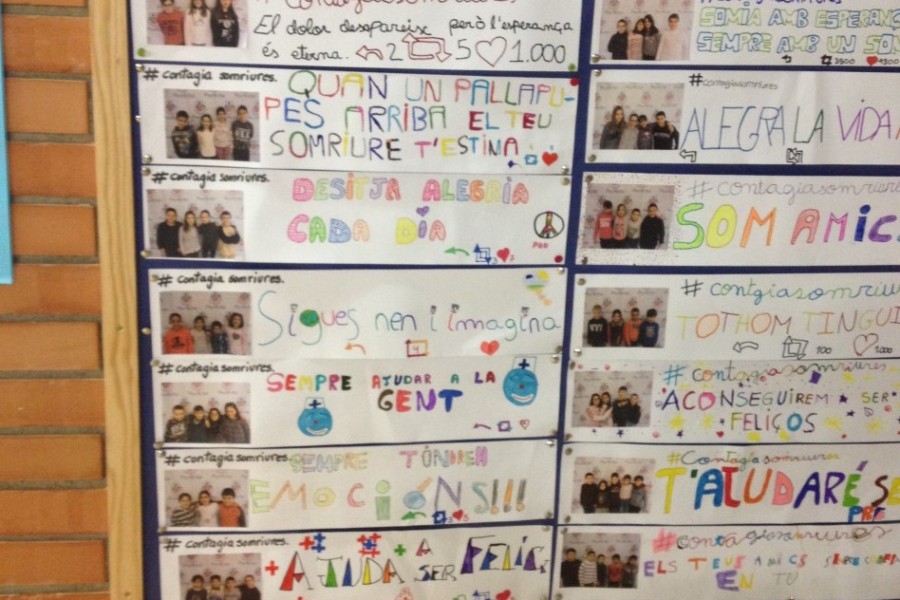 El dolor desapareix però l'esperança
és eterna. 2 5 1.000
# contagia somriures.
QUAN UN PALLAPU-
PES ARRIBA EL TEU
SOMRIURE T'ESTINA
# contagia somriures.
DESITJA ALEGRIA
CADA DIA
# contagia somriures.
Sigues nen i imagina
# contagia somriures.
SEMPRE AJUDAR A LA
GENT
# contagia somriures.
SEMPRE TÓNREM
EMOCIÓNS!!!
# contagia somriures.
AJUDA A
SER FELIÇ
SOMIA AMB
SEMPRE AMB UN
#contagiasomriures
ALEGRA LA VIDA
# contagiasomriures
SOM AMICS
# contgiasomriu
TOTHOM TINGUI
100 1.000
# contagiasomriures
ACONSEGUIREM SER
FELIÇOS
#Contagiasomriures
T'AJUDARÉ SE
# contagiasomriures
ELS TEUS AMICS
EN TU